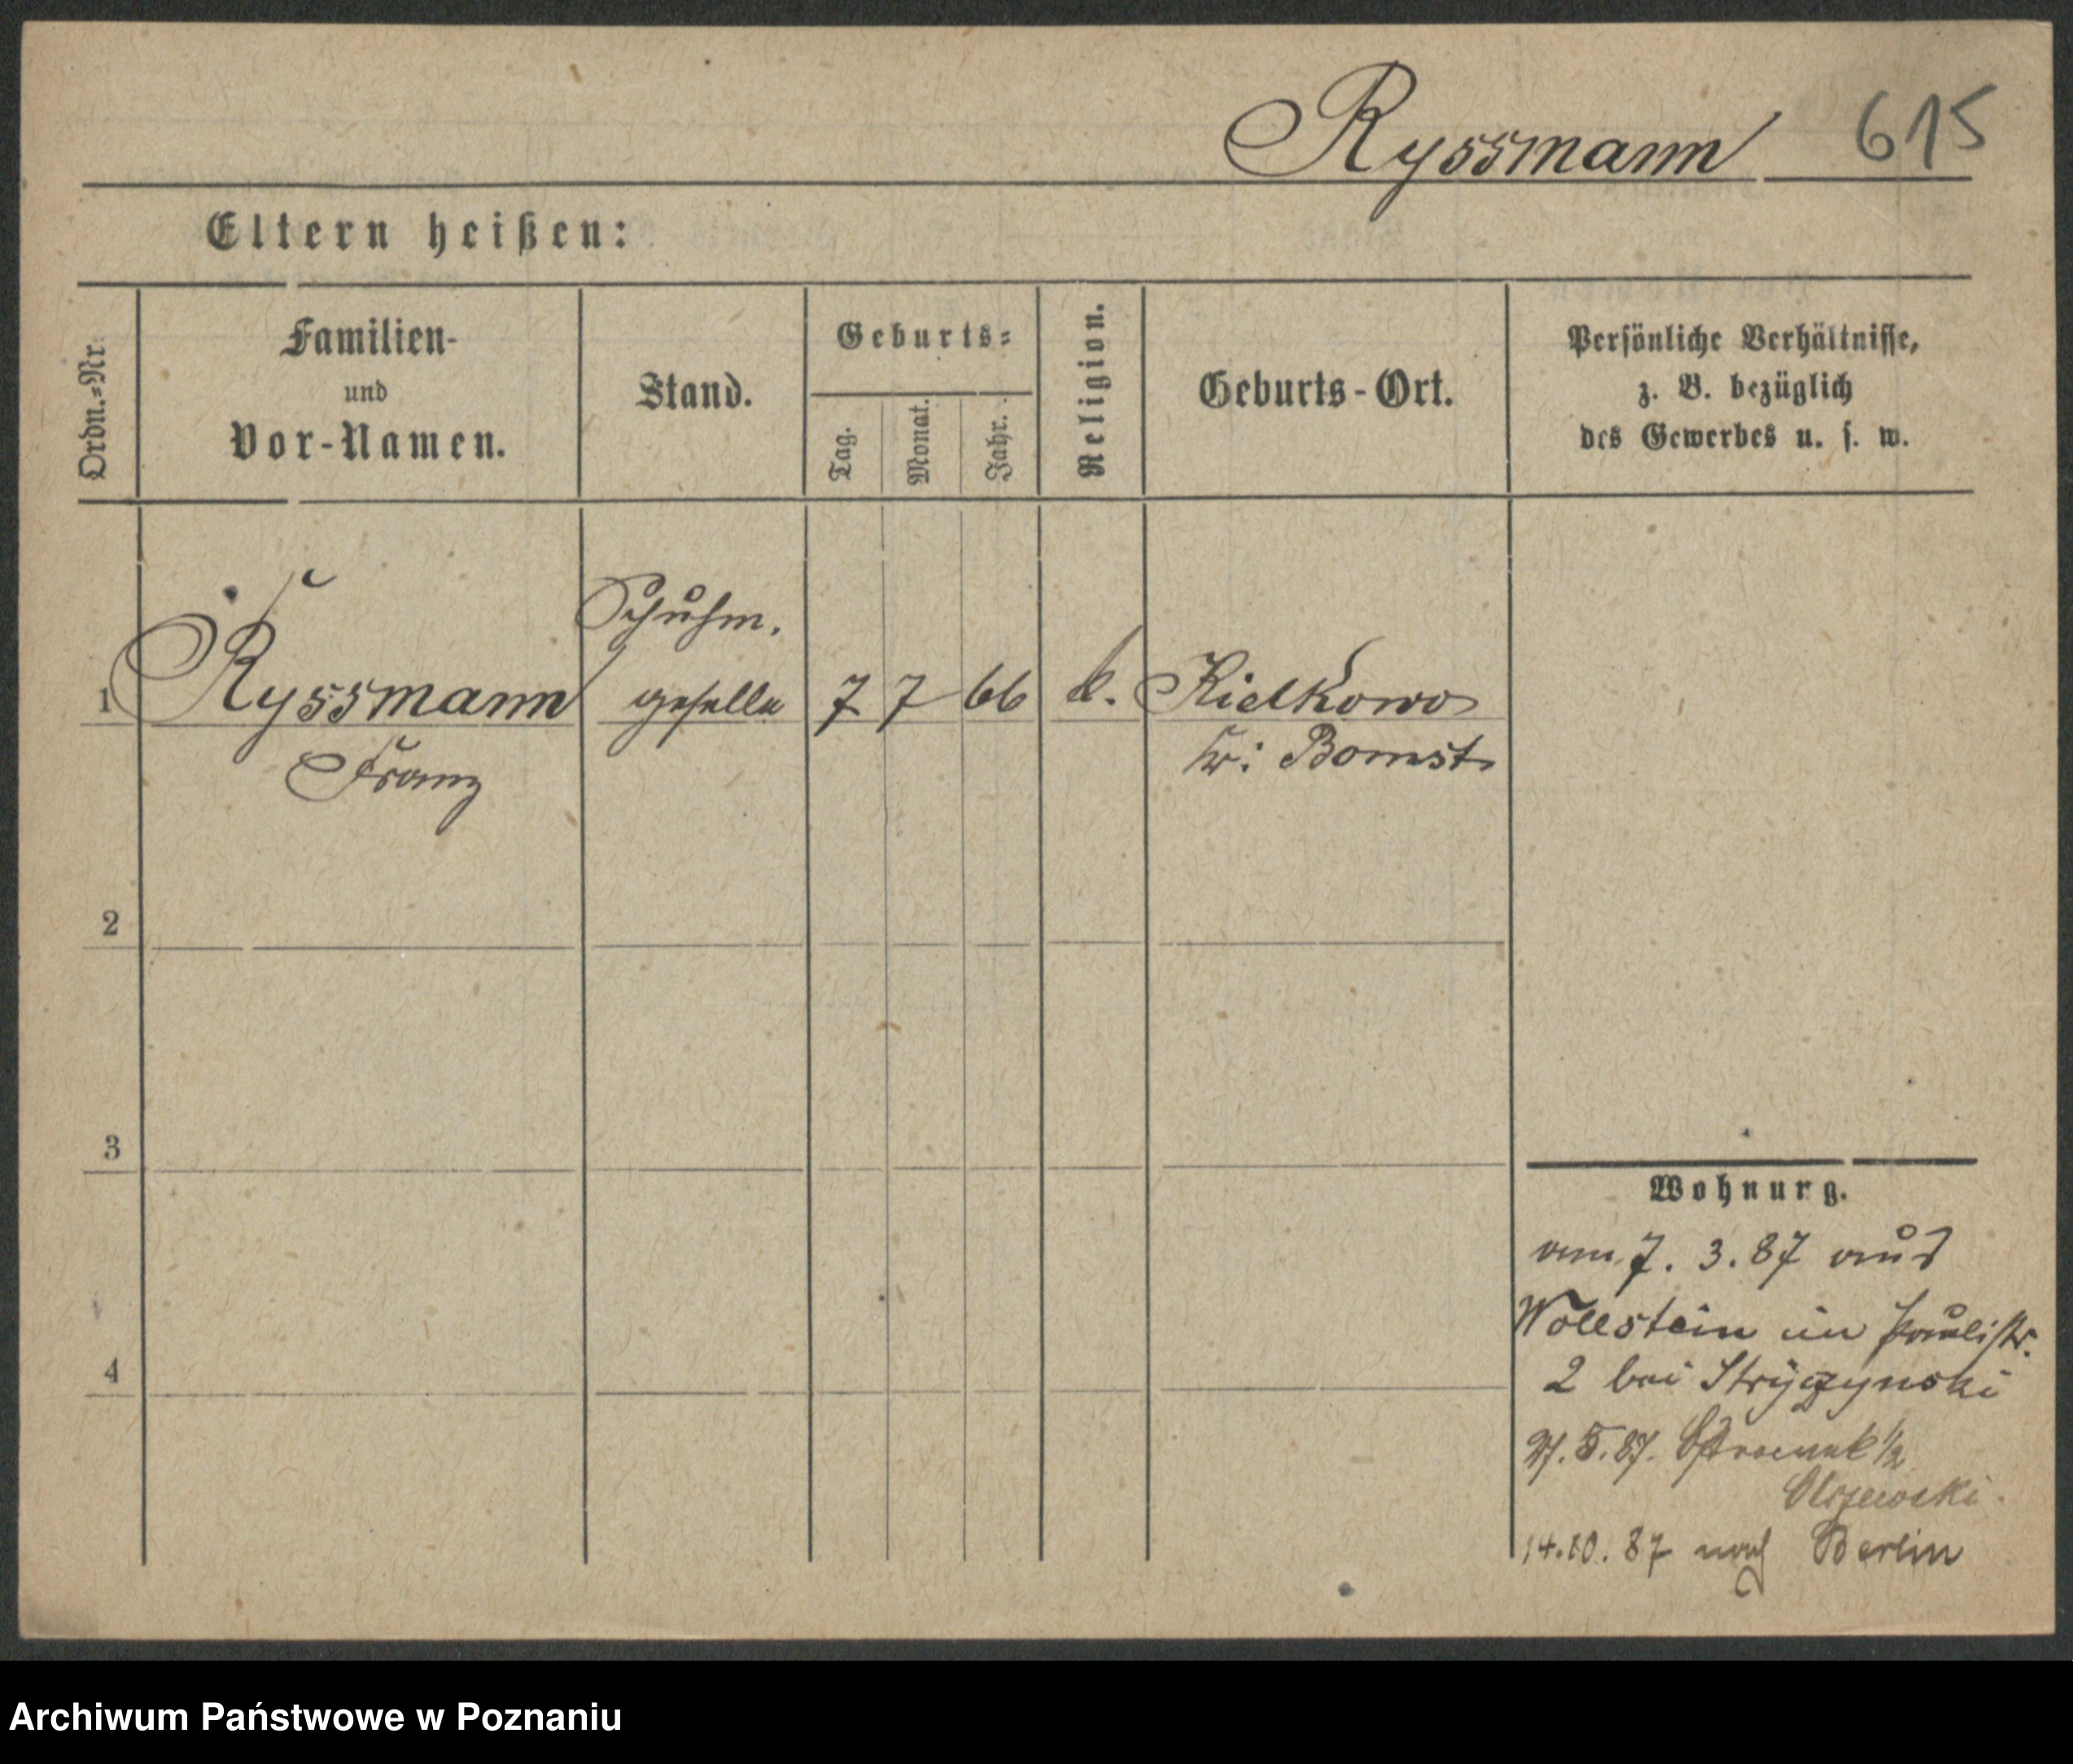 Ryssmann 615
Eltern heißen:
Ordn.-Nr.
Familien-
und
Vor-Namen.
Stand.
Geburts-
Tag.
Monat.
Jahr.
Religion.
Geburts-Ort.
Persönliche Verhältnisse,
z. B. bezüglich
des Gewerbes u. s. w.
Schuhm.
1 Ryssmann geselle 7 7 66 k. Kielkowo
Franz Kr: Bomst
2
3
4
Wohnurg.
am 7. 3. 87 aus
Wollstein in Paulistr.
2 bei Stryczynski
27. 5. 87. 1/2
Olszewski.
14.10.87 nach Berlin
Archiwum Państwowe w Poznaniu